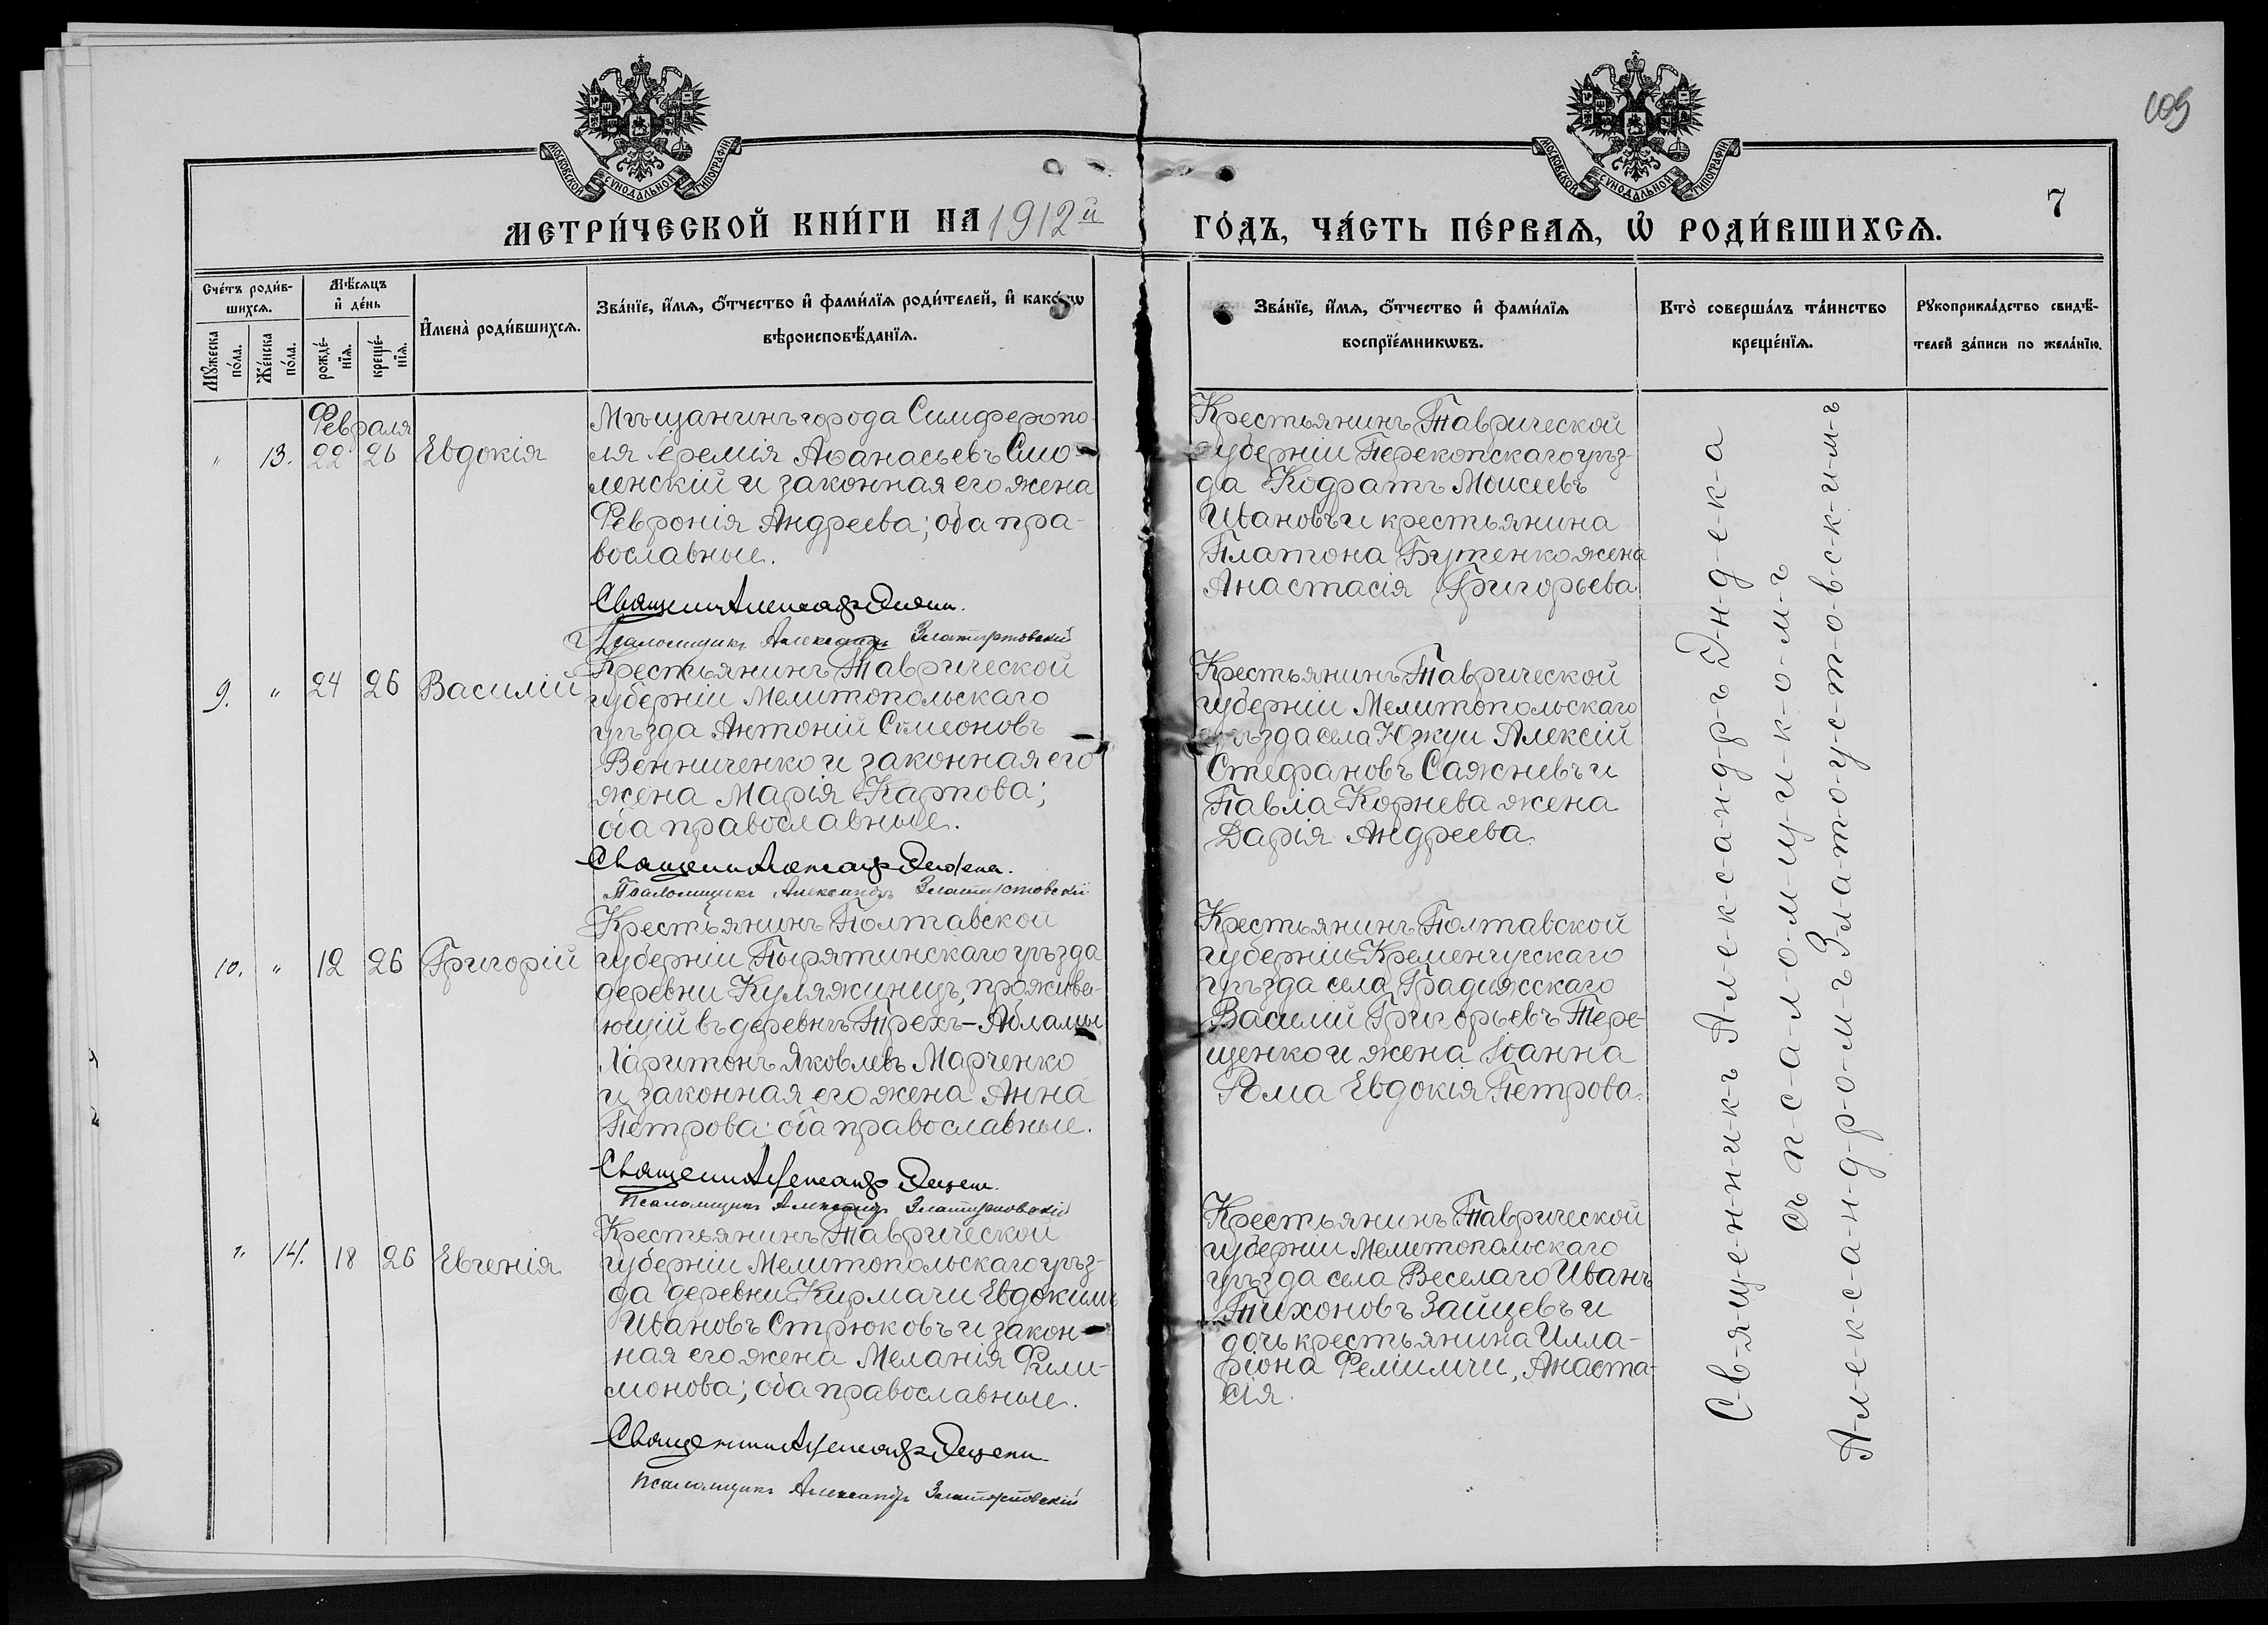 109
МОСКОВСКОЙ СѴНОДАЛЬНОЙ ТИПОГРАФІИ
МОСКОВСКОЙ СѴНОДАЛЬНОЙ ТИПОГРАФІИ
7
МЕТРИ́ЧЕСКОЙ КНИ́ГИ НА 1912й ГО́ДЪ, ЧА́СТЬ ПЕ́РВАѦ, Ѡ҆ РОДИ́ВШИХСѦ.
Сче́тъ роди́в-
шихсѧ.
Мꙋжеска по́ла.
Же́нска по́ла.
Мѣ́сѧцъ
и҆ де́нь
рожде́-
нїѧ.
креще́-
нїѧ.
И҆мена̀ роди́вшихсѧ.
Зва́нїе, и҆́мѧ, ѻ҆́тчество и҆ фами́лїѧ роди́телей, и҆ како́гѡ
вѣроисповѣ́данїѧ.
Зва́нїе, и҆́мѧ, ѻ҆́тчество и҆ фами́лїѧ
воспрїе́мникѡвъ.
Кто̀ соверша́лъ та́инство
креще́нїѧ.
Рꙋкоприкла́дство свидѣ́-
телей за́писи по жела́нїю.
Февраля
" 13. 22 26 Евдокія
Мѣщанинъ города Симферопо-
ля Іеремія Аѳанасьевъ Смо-
ленскій и законная его жена
Феѵронія Андреева; оба пра-
вославные.
Священ. Александръ
Псаломщикъ Александръ Златоустовскій
Крестьянинъ Таврической
губерніи Перекопскаго уѣз-
да Кодратъ Моисеевъ
Ивановъ и крестьянина
Платона Бутенко жена
Анастасія Григорьева.
9. " 24 26 Василій
Крестьянинъ Таврической
губерніи Мелитопольскаго
уѣзда Антоній Симеоновъ
Венниченко и законная его
жена Марія Карпова;
оба православные.
Священ. Александръ
Псаломщикъ Александръ Златоустовскій
Крестьянинъ Таврической
губерніи Мелитопольскаго
уѣзда села Юзкуи Алексій
Стефановъ Сажневъ и
Павла Корнева жена
Дарія Андреева.
10. " 12 26 Григорій
Крестьянинъ Полтавской
губерніи Пырятинскаго уѣзда
деревни Куляжинцъ, прожива-
ющій въ деревнѣ Трехъ-Абламы
Харитонъ Яковлевъ Марченко
и законная его жена Анна
Петрова; оба православные.
Священ. Александръ
Псаломщикъ Александръ Златоустовскій
Крестьянинъ Полтавской
губерніи Кременчугскаго
уѣзда села Градижскаго
Василій Григорьевъ Тере-
щенко и жена Іоанна
Рома Евдокія Петрова.
" 14. 18 26 Евгенія
Крестьянинъ Таврической
губерніи Мелитопольскаго уѣз-
да деревни Кирмачи Евдокимъ
Ивановъ Стрюковъ и закон-
ная его жена Меланія Фили-
монова; оба православные.
Священникъ Александръ
Псаломщикъ Александръ Златоустовскій
Крестьянинъ Таврической
губерніи Мелитопольскаго
уѣзда села Веселаго Иванъ
Тихоновъ Зайцевъ и
дочь крестьянина Илла-
ріона Анаста-
сія.
С-в-я-щ-е-н-н-и-к-ъ А-л-е-к-с-а-н-д-р-ъ Э-н-д-е-к-а
съ п-с-а-л-о-м-щ-и-к-о-м-ъ
А-л-е-к-с-а-н-д-р-о-м-ъ З-л-а-т-о-у-с-т-о-в-с-к-и-м-ъ